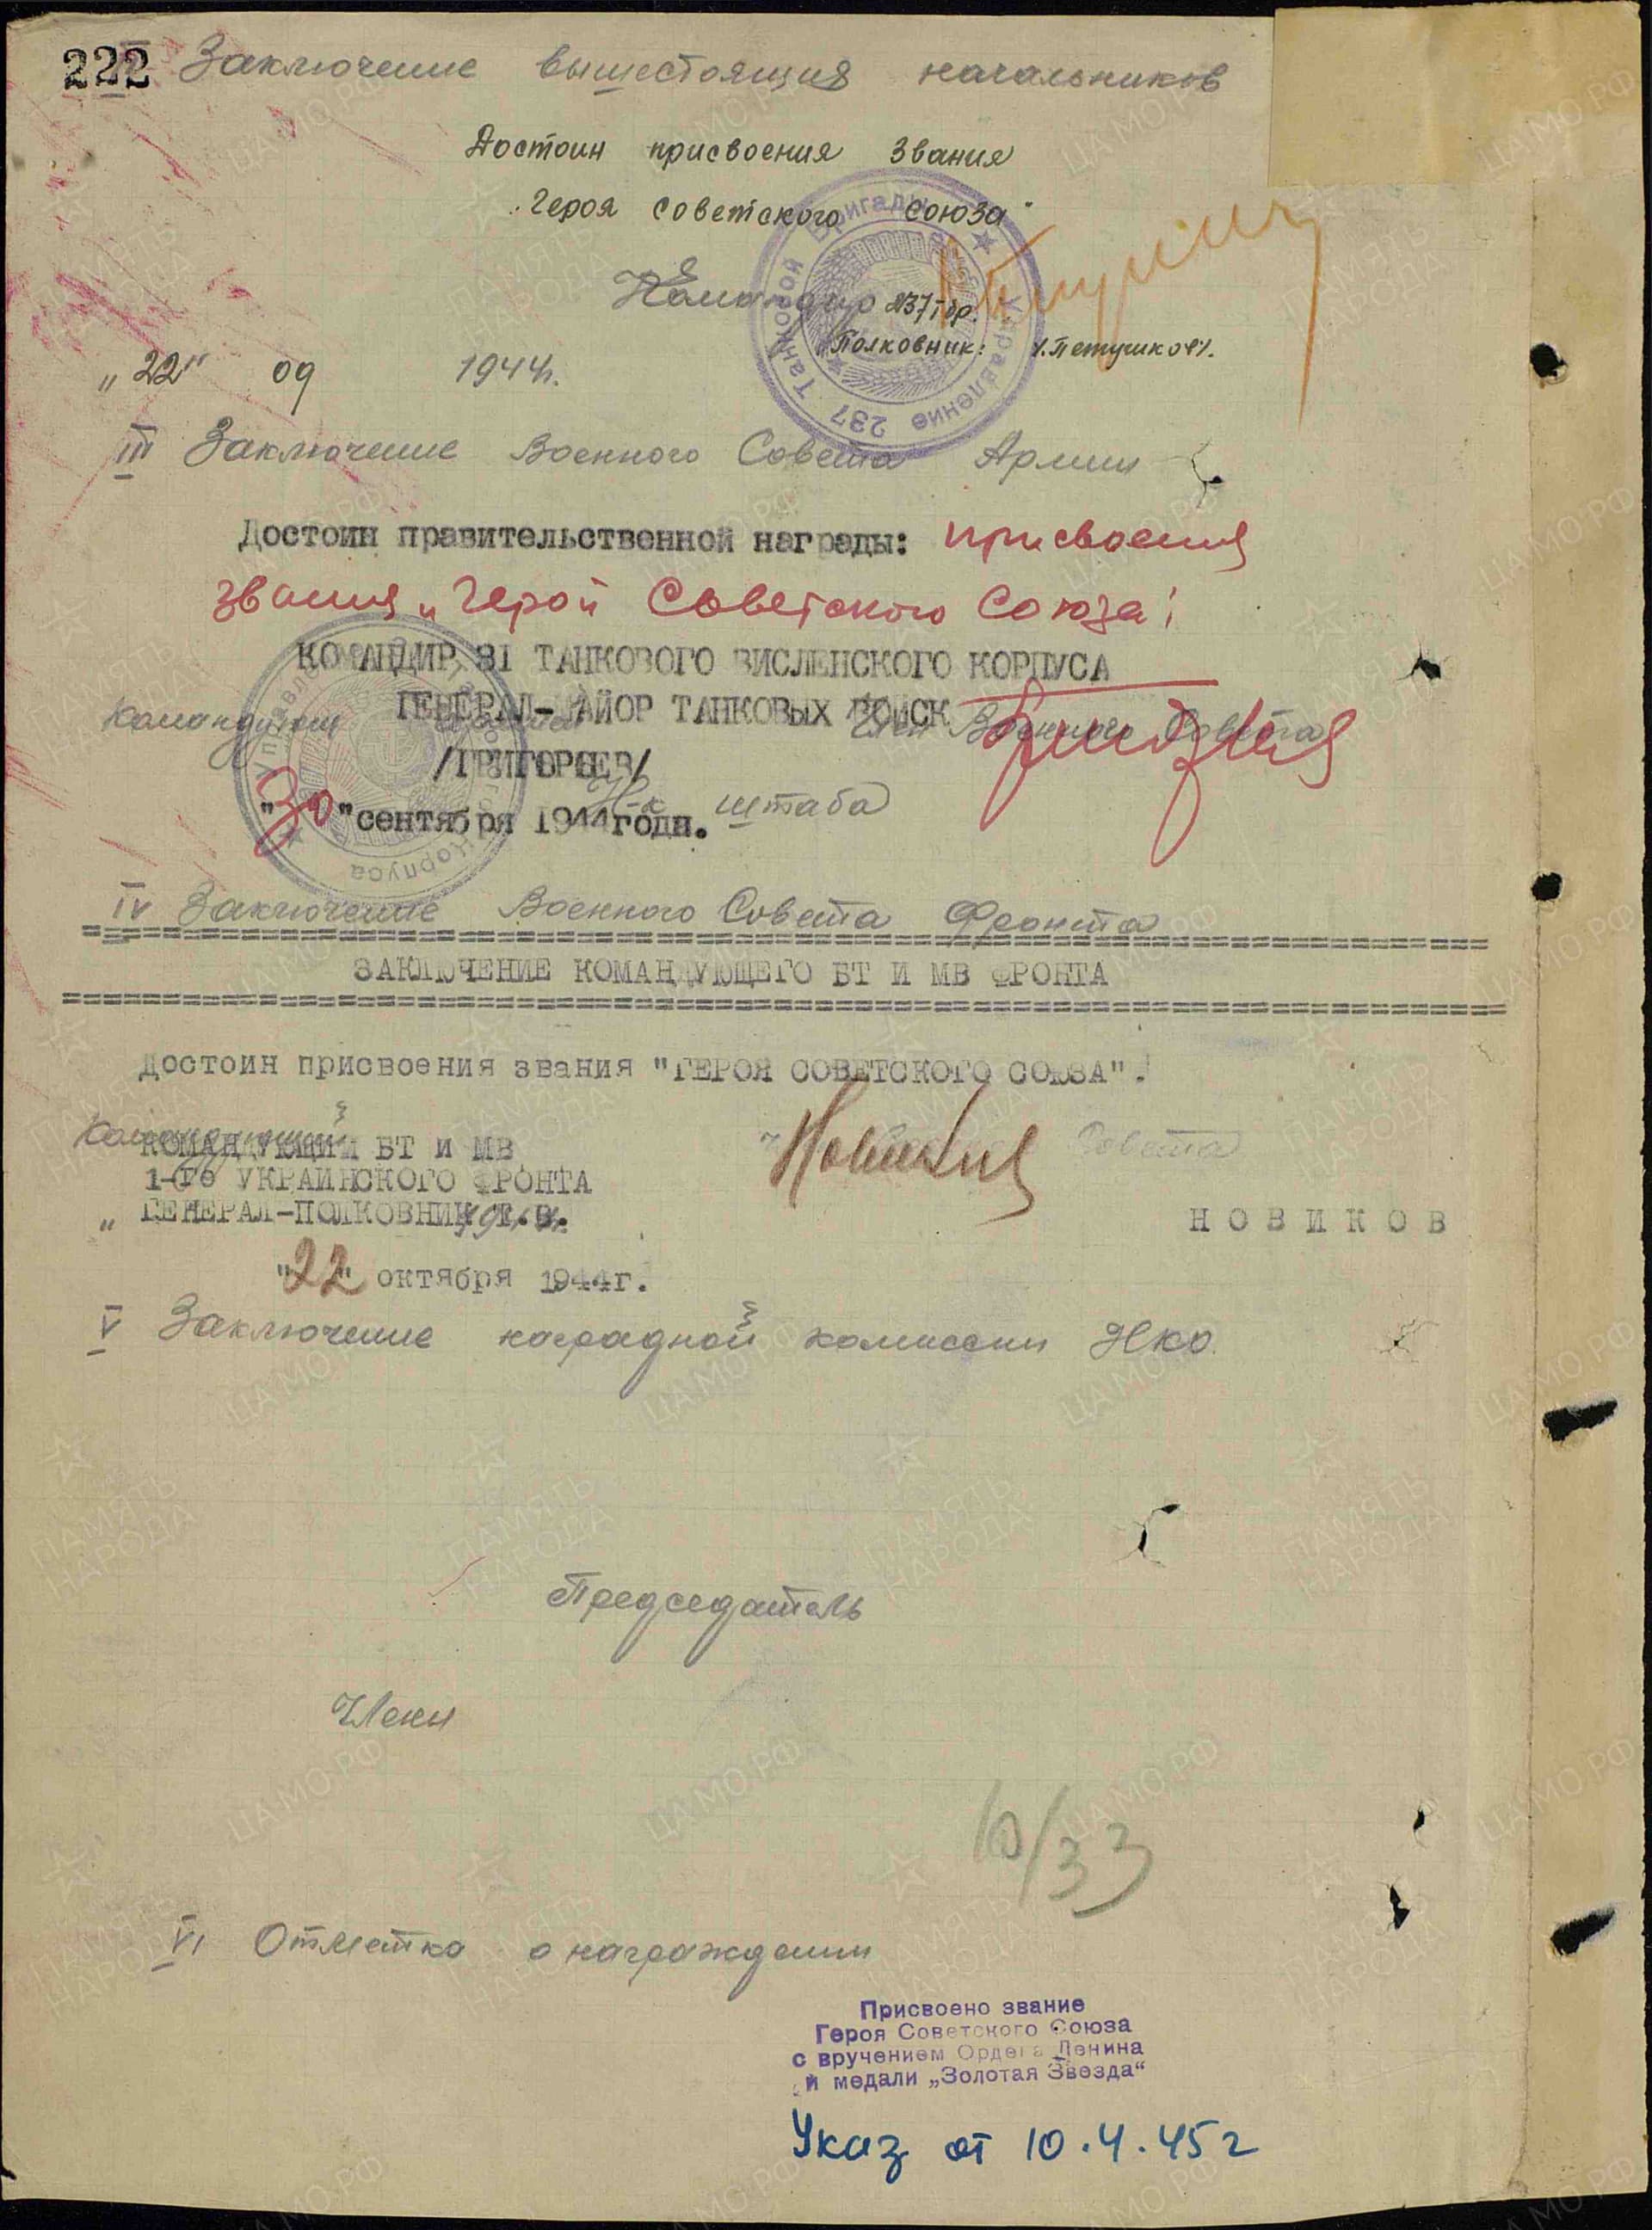 222
II Заключение вышестоящия начальников
Достоин присвоения звания
"Героя советского союза"
Командир 237 тбр.
Полковник: /Петушков/.
"22" 09 1944г.
Управление 237 Танковой Бригады
III Заключение Военного Совета Армии
Достоин правительственной награды: присвоения
звания "Герой Советского Союза"
КОМАНДИР 31 ТАНКОВОГО ВИСЛЕНСКОГО КОРПУСА
ГЕНЕРАЛ-МАЙОР ТАНКОВЫХ ВОЙСК
Командующий Член Военного Совета
/ГРИГОРЬЕВ/
Н-к штаба
"30" сентября 1944 годн.
IV Заключение Военного Совета Фронта
ЗАКЛЮЧЕНИЕ КОМАНДУЮЩЕГО БТ И МВ ФРОНТА
Достоин присвоения звания "ГЕРОЯ СОВЕТСКОГО СОЮЗА".
Командующий Совета
КОМАНДУЮЩИЙ БТ и МВ
1-го УКРАИНСКОГО ФРОНТА
ГЕНЕРАЛ-ПОЛКОВНИК т.в.
НОВИКОВ
"22" октября 1944г.
V Заключение наградной комиссии НКО
Председатель
Члены
10/33
VI Отметка о награждении
Присвоено звание
Героя Советского Союза
с вручением Ордена Ленина
и медали „Золотая Звезда"
Указ от 10.4.45 г